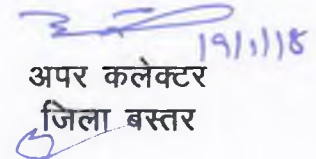 19/1/18
अपर कलेक्टर
जिला बस्तर